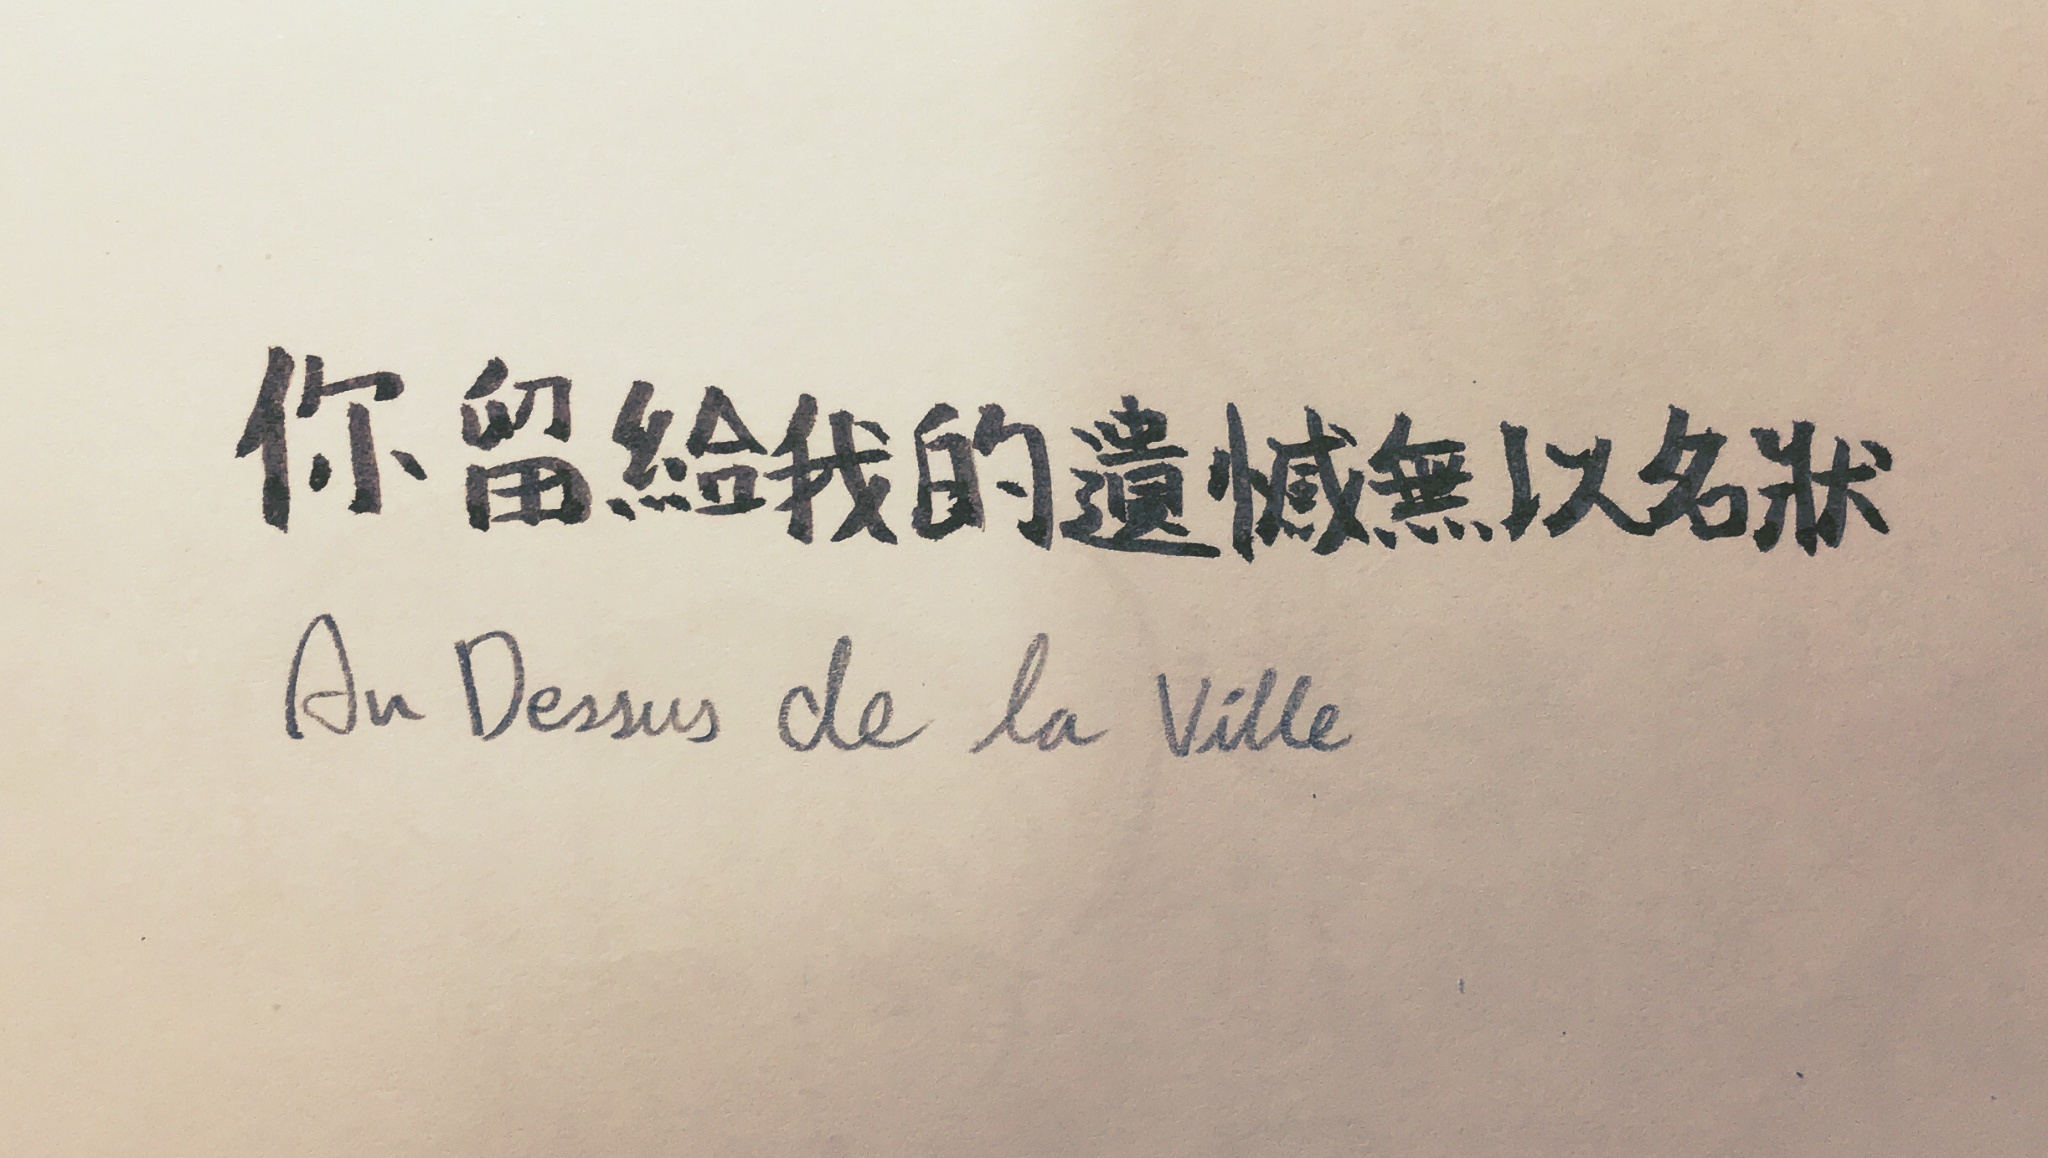 你留給我的遺憾無以名狀
Au Dessus de la Ville